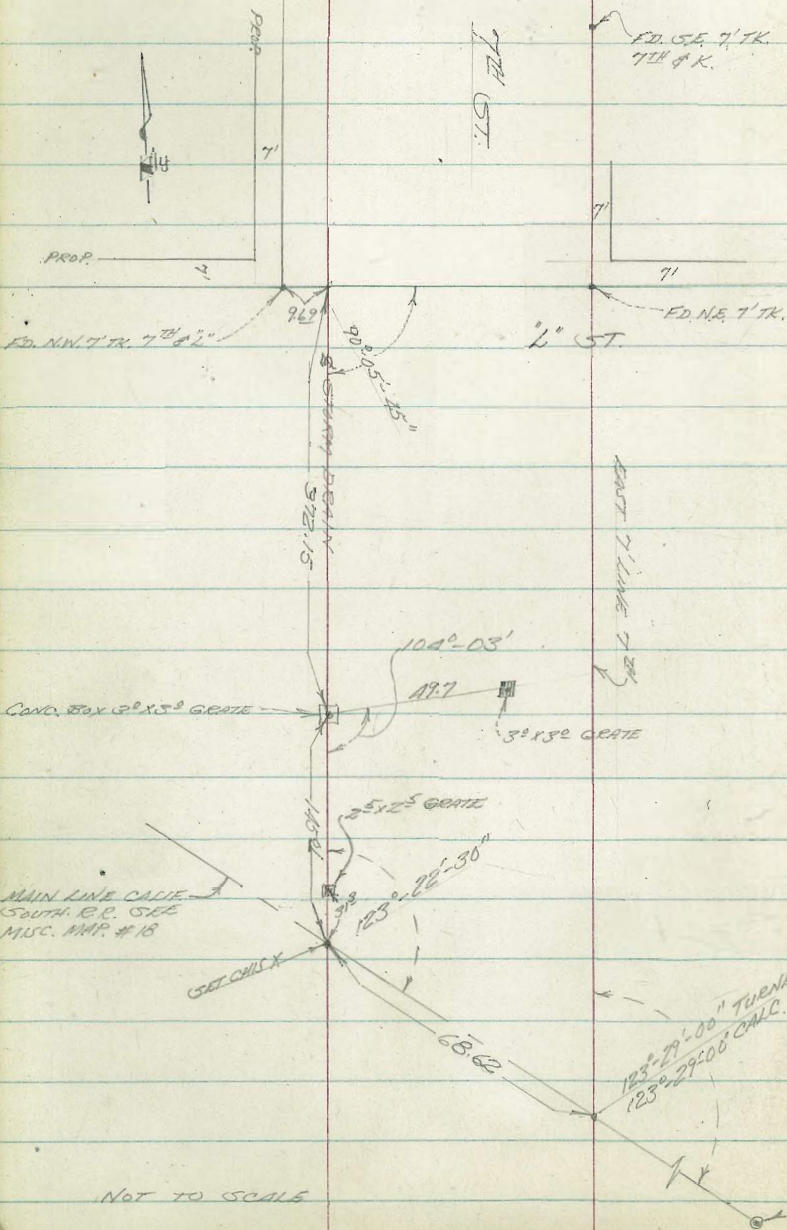 PROP.
7TH ST.
FD. S.E. 7' TK.
7TH & K.
7'
7'
PROP.
7'
7'
9.69
FD. N.W. 7' TK. 7TH & "L"
FD. N.E. 7' TK.
"L" ST.
90°-05'-15"
STORM DRAIN
372.15
EAST 7' LINE 7TH
104°-03'
49.7
CONC. BOX 3⁰ X 3⁰ GRATE
3⁰ X 3⁰ GRATE
2⁵ X 2⁵ GRATE
123°-22'-30"
MAIN LINE CALIF.
SOUTH. R.R. SEE
MISC. MAP. #18
SET CHIS X
68.62
123°-29'-00" TURNE
123°-29'-00" CALC.
NOT TO SCALE